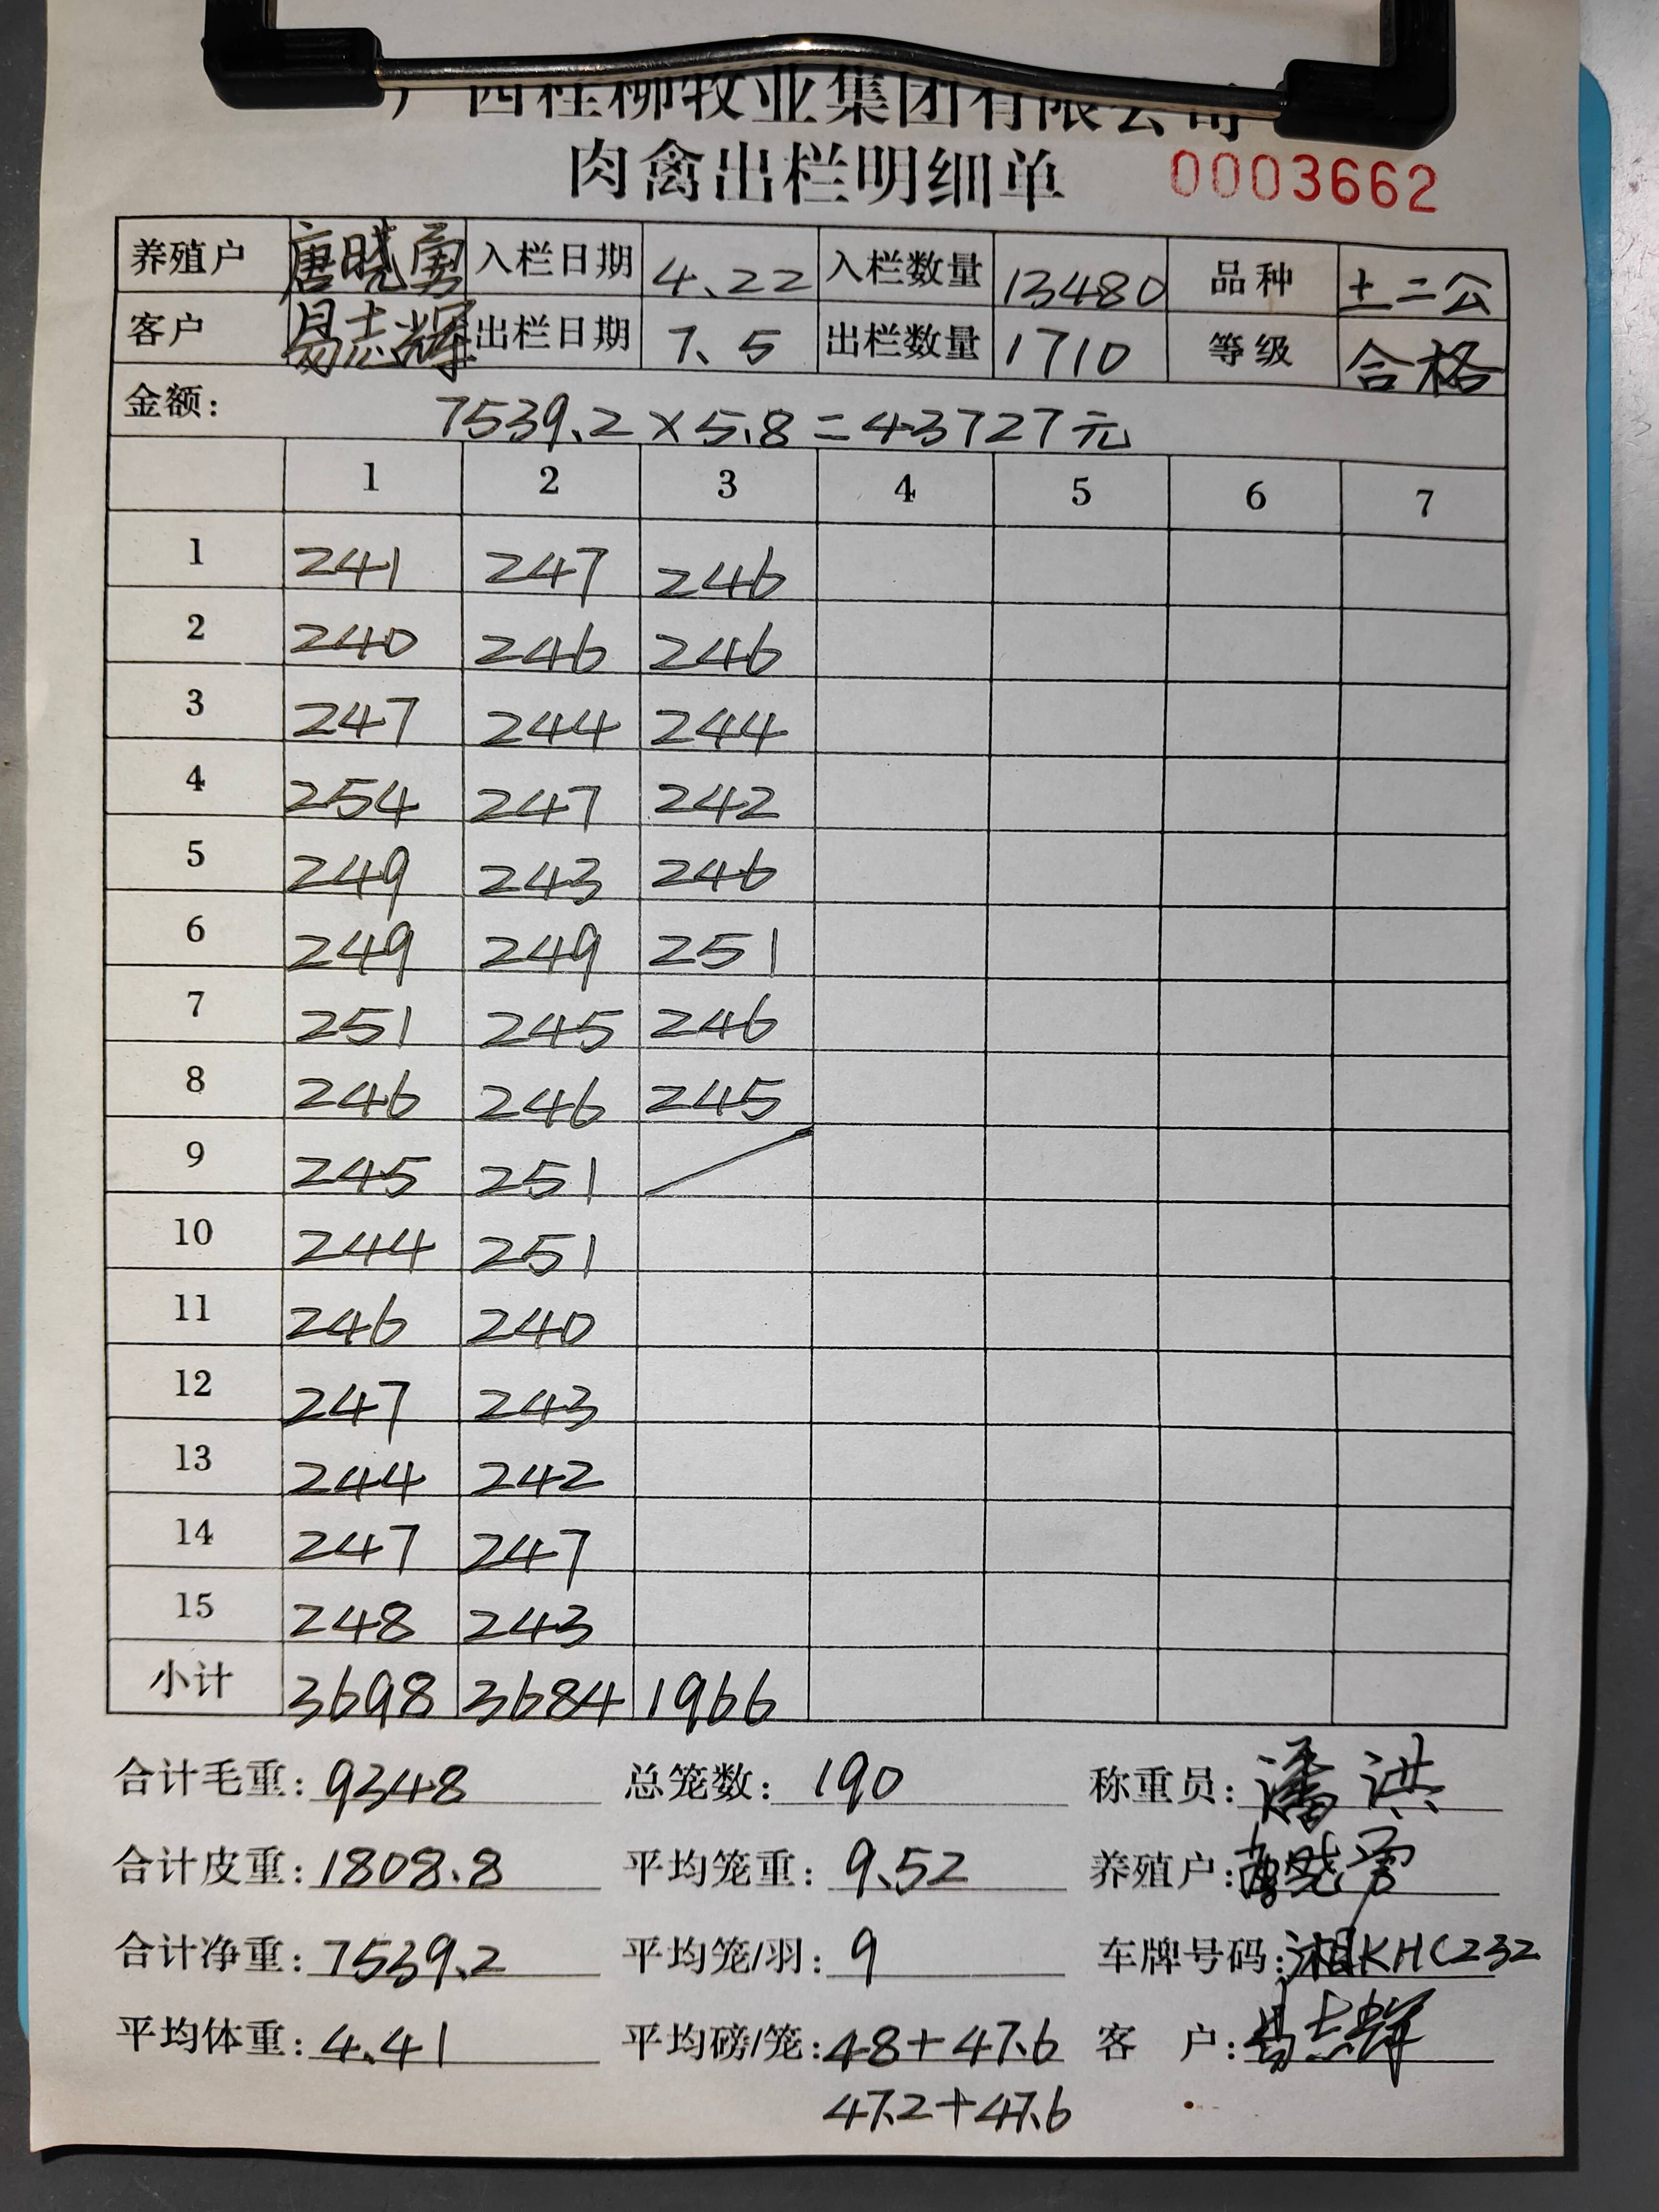 广西桂柳牧业集团有限公司
肉禽出栏明细单 0003662
养殖户 唐晓勇 入栏日期 4、22 入栏数量 13480 品种 土二公
客户 易志辉 出栏日期 7、5 出栏数量 1710 等级 合格
金额: 7539.2×5.8=43727元
1 2 3 4 5 6 7
1 241 247 246
2 240 246 246
3 247 244 244
4 254 247 242
5 249 243 246
6 249 249 251
7 251 245 246
8 246 246 245
9 245 251
10 244 251
11 246 240
12 247 243
13 244 242
14 247 247
15 248 243
小计 3698 3684 1966
合计毛重: 9348 总笼数: 190 称重员: 潘洪
合计皮重: 1808.8 平均笼重: 9.52 养殖户: 唐晓勇
合计净重: 7539.2 平均笼/羽: 9 车牌号码: 湘KHC232
平均体重: 4.41 平均磅/笼: 48+47.6 客 户: 易志辉
47.2+47.6